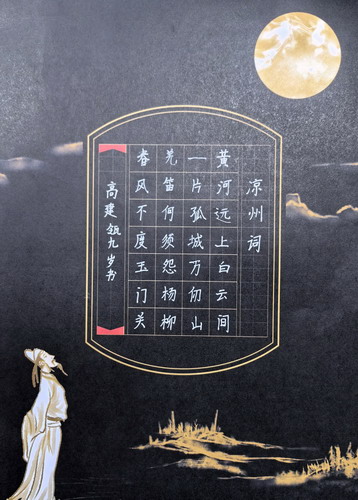 凉州词
黄河远上白云间
一片孤城万仞山
羌笛何须怨杨柳
春风不度玉门关
高建瓴九岁书